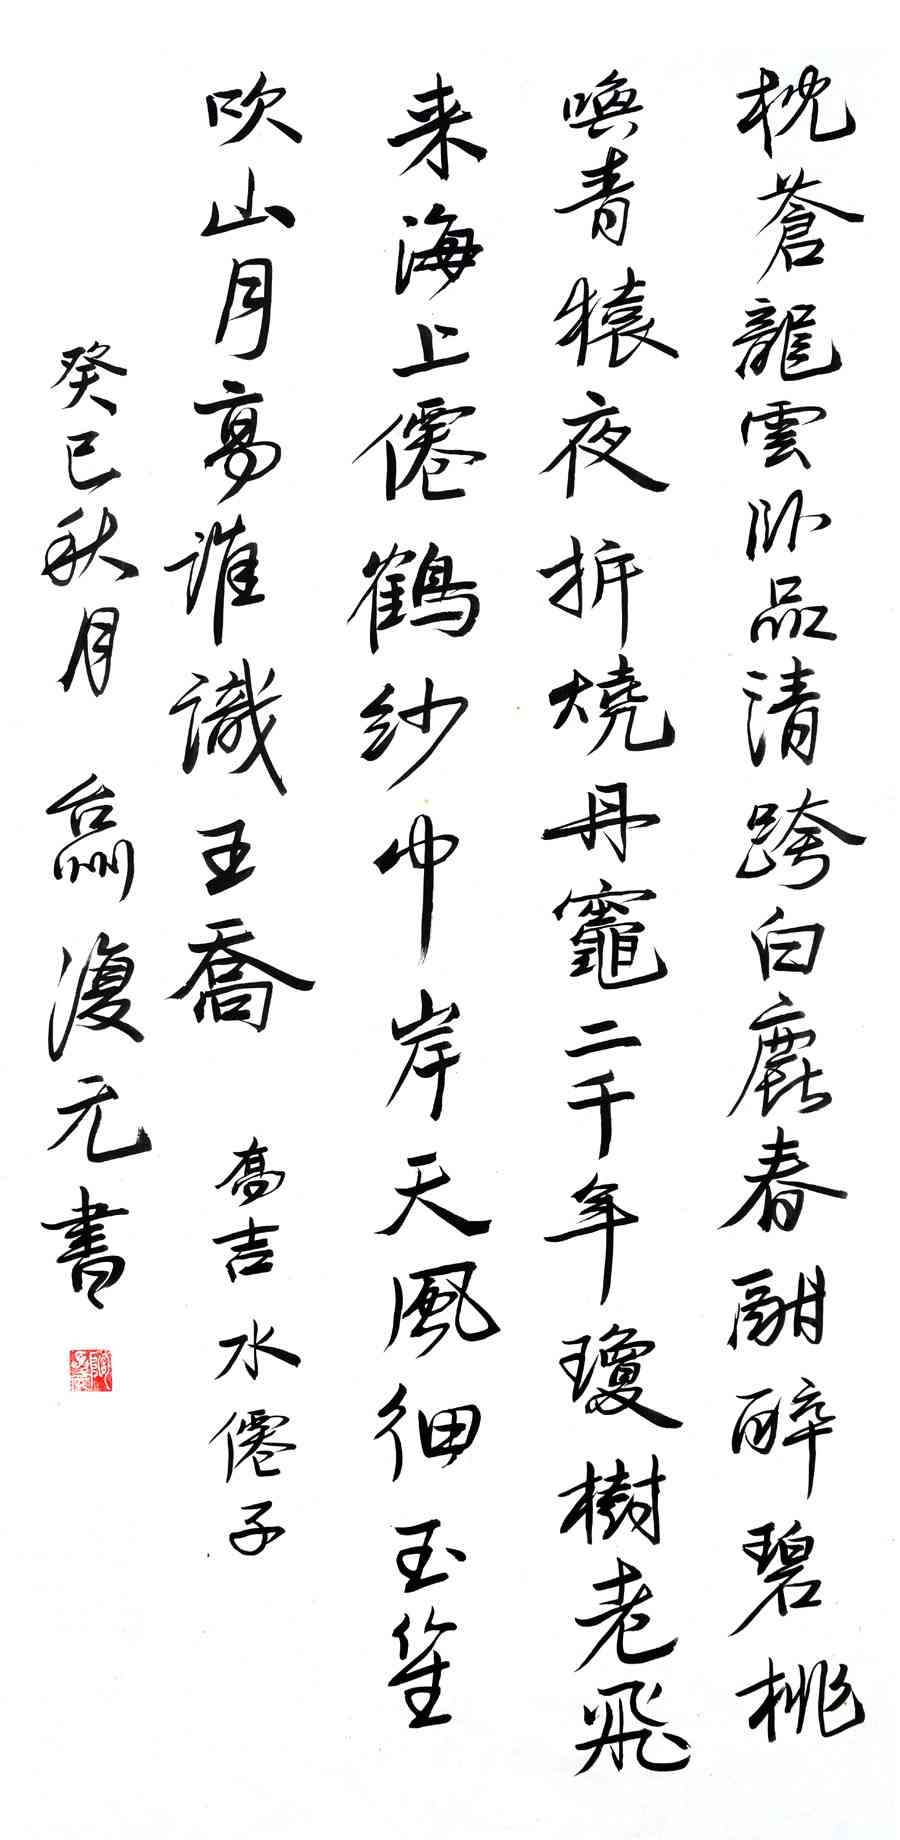 枕蒼龍雲卧品清跨白鹿春酣醉碧桃
喚青猿夜拆燒丹竈二千年瓊樹老飛
来海上僊鶴紗巾岸天風細玉笙
吹山月高誰識王喬 喬吉 水僊子
癸巳秋月 磊洲復元書